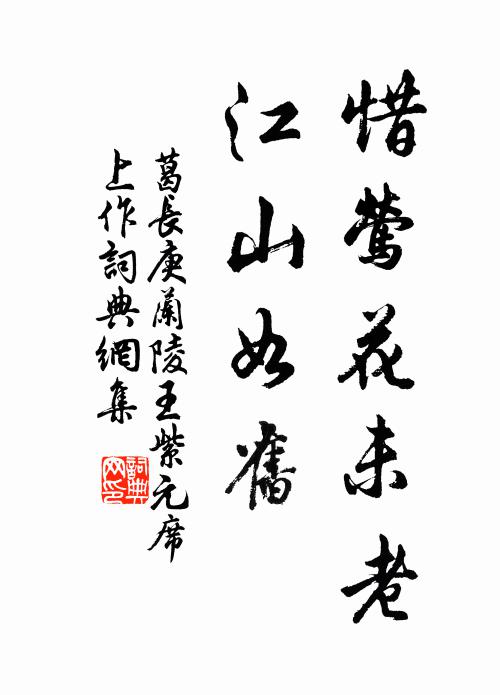 惜鶯花未老
江山如舊
葛長庚蘭陵王紫元席
上作詞典網集
詞典
网印